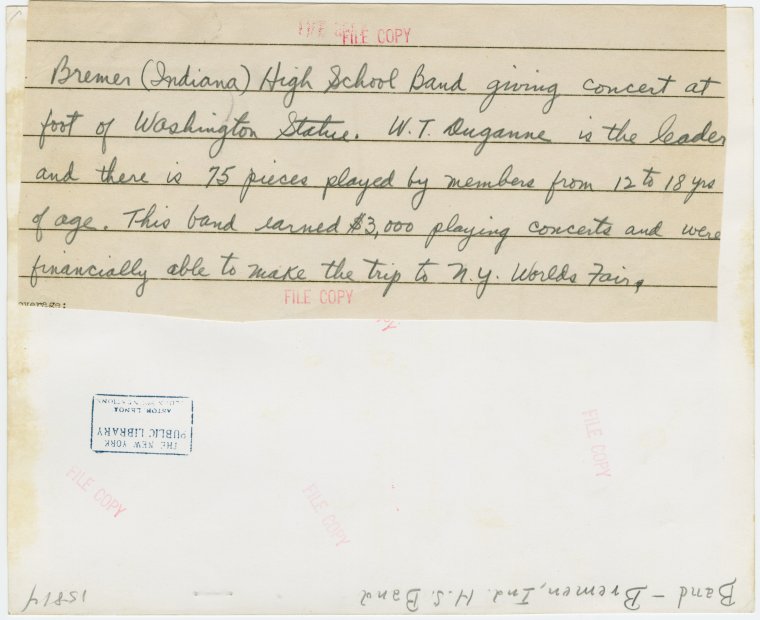 FILE COPY
Bremer (Indiana) High School Band giving concert at
foot of Washington Statue. W.T. Duganne is the leader
and there is 75 pieces played by members from 12 to 18 yrs
of age. This band earned $3,000 playing concerts and were
financially able to make the trip to N.Y. Worlds Fair.
FILE COPY
overage:
THE NEW YORK
PUBLIC LIBRARY
ASTOR LENOX
FILE COPY
FILE COPY
FILE COPY
Band - Bremen, Ind. H.S. Band
15814